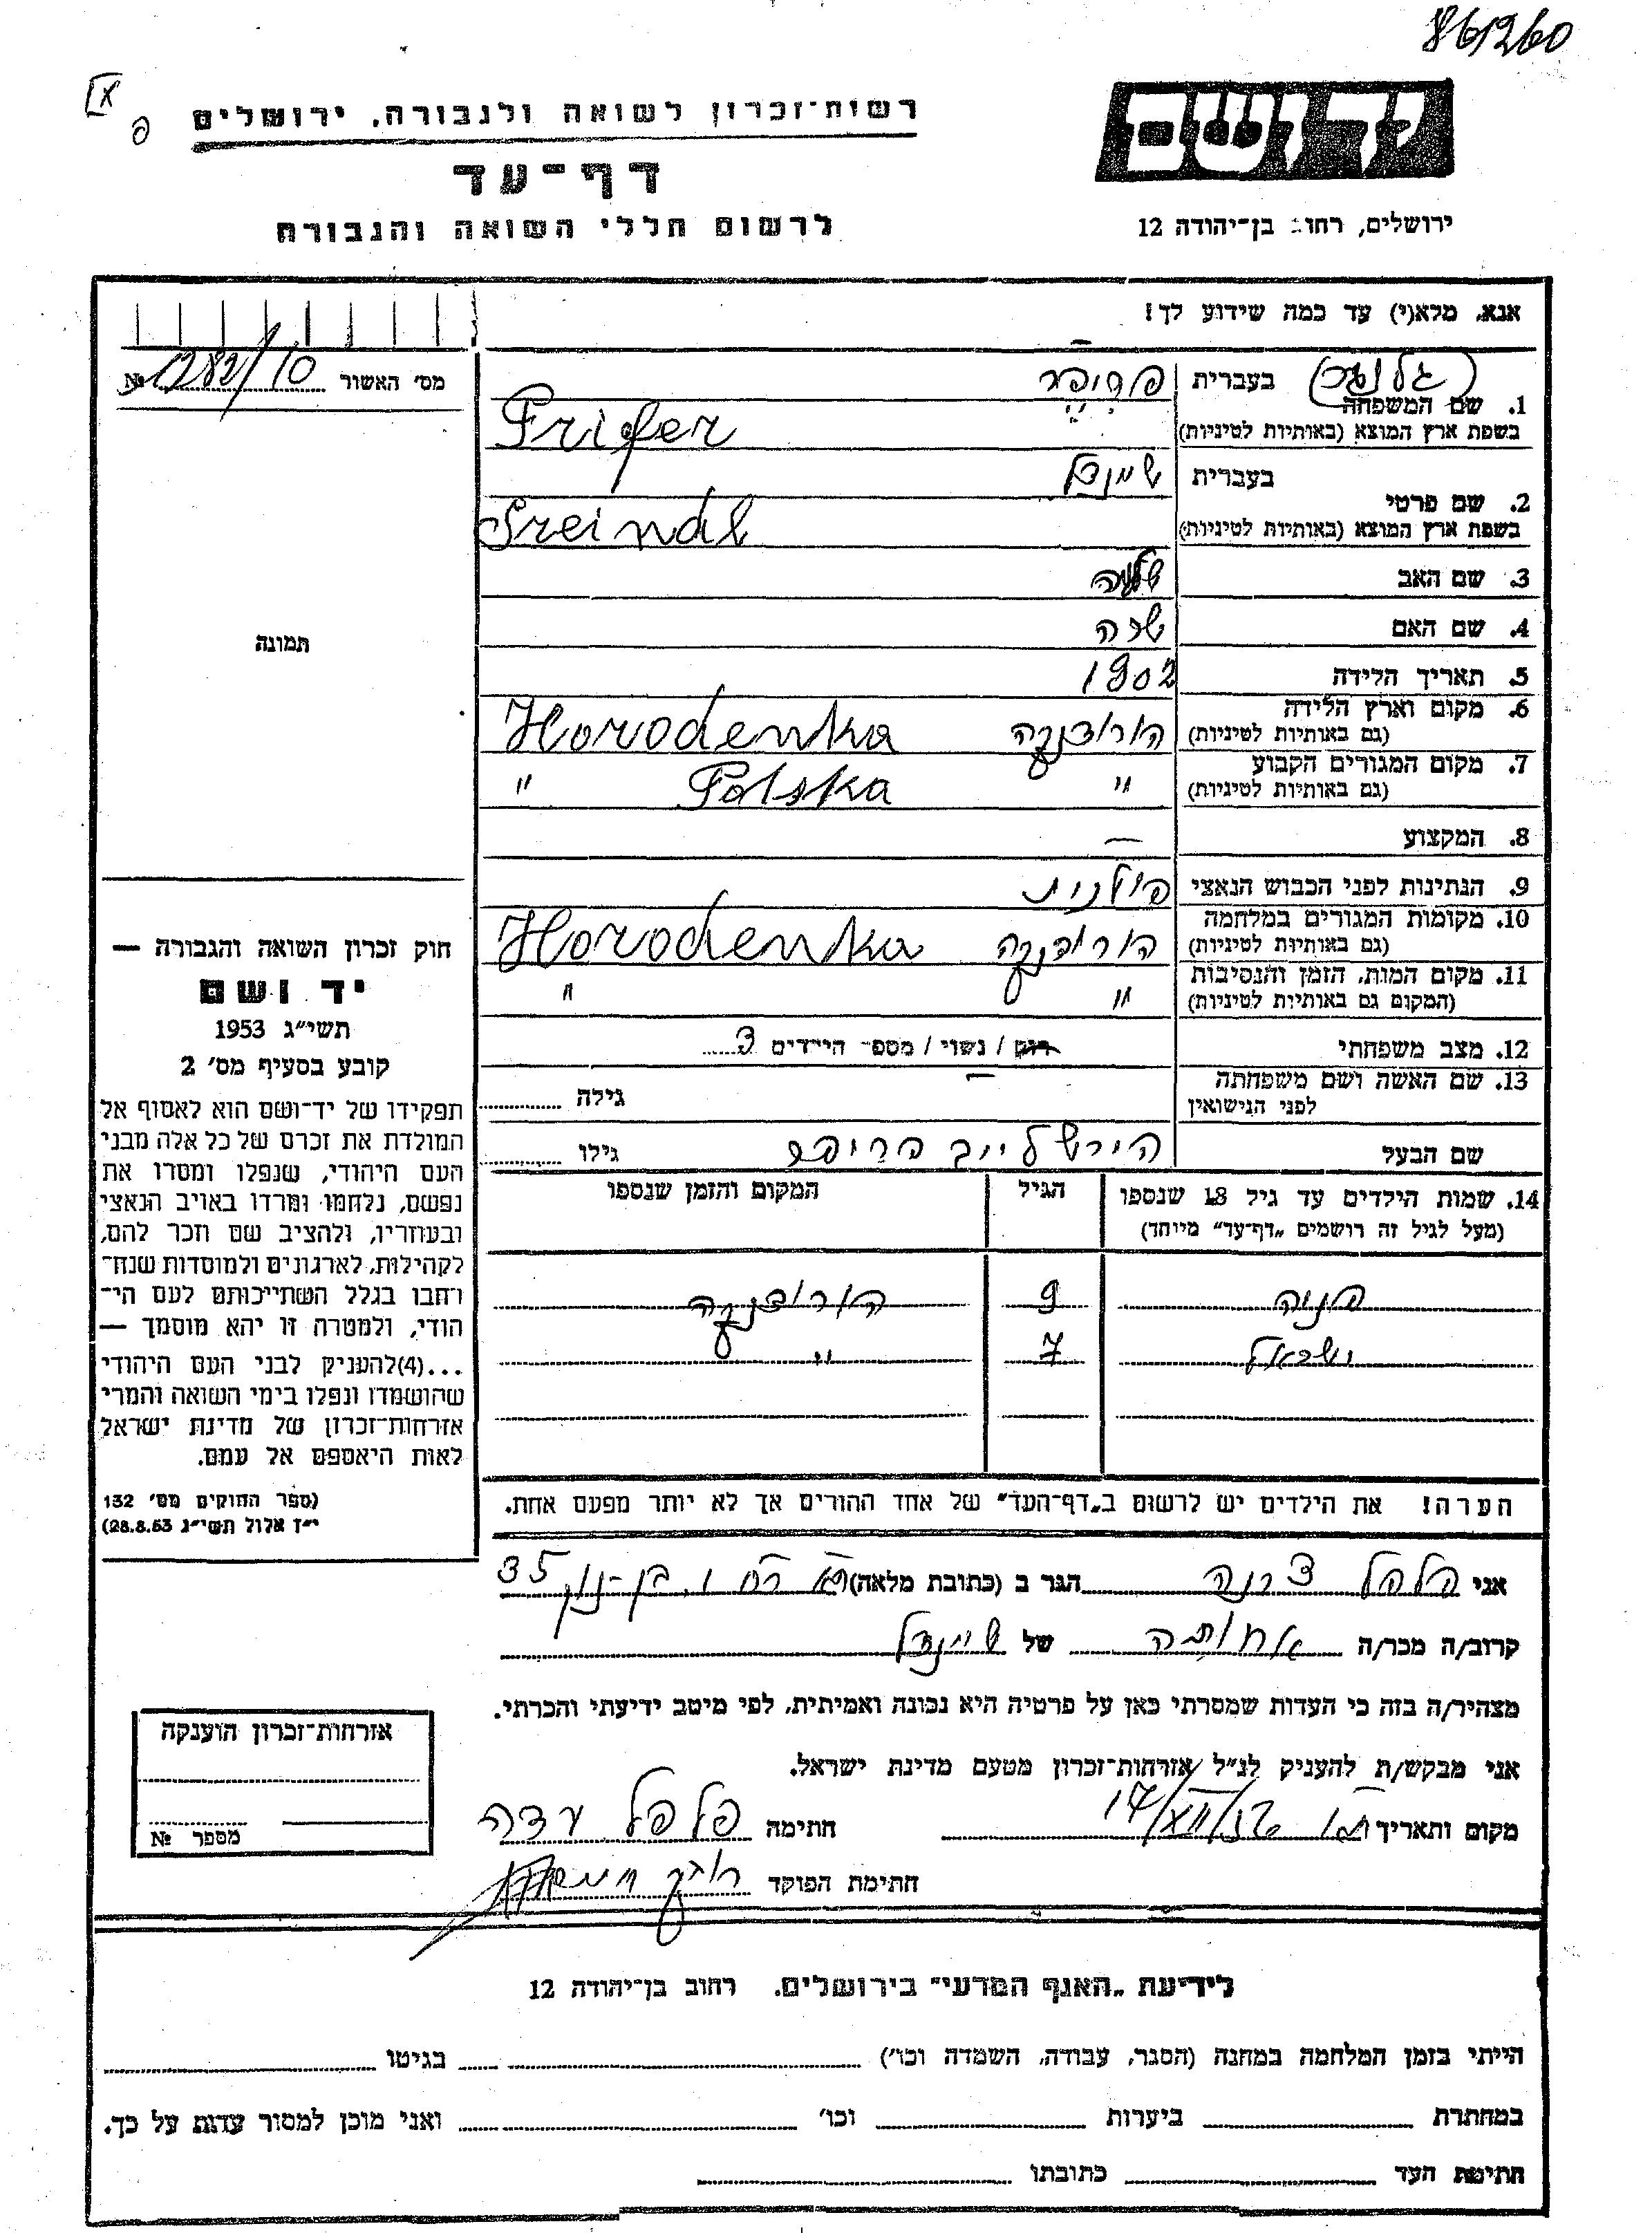 861260
רשות־זכרון לשואה ולגבורה, ירושלים
דף־עד
לרשום חללי השואה והגבורה
ידושם
ירושלים, רחוב בן־יהודה 12
אנא, מלא(י) עד כמה שידוע לך!
מס׳ האשור № 1282/10
1. שם המשפחה
בעברית
בשפת ארץ המוצא (באותיות לטיניות) Prifer
2. שם פרטי
בעברית שיינדל
בשפת ארץ המוצא (באותיות לטיניות) Sreindl
3. שם האב שלמה
4. שם האם שרה
5. תאריך הלידה 1902
6. מקום וארץ הלידה (גם באותיות לטיניות) הורודנקה Horodenka
7. מקום המגורים הקבוע (גם באותיות לטיניות) " Polska "
8. המקצוע —
9. הנתינות לפני הכבוש הנאצי פולנית
10. מקומות המגורים במלחמה (גם באותיות לטיניות) הורודנקה Horodenka
11. מקום המות, הזמן והנסיבות (המקום גם באותיות לטיניות) " "
12. מצב משפחתי רוק / נשוי / מספר הילדים 3
13. שם האשה ושם משפחתה לפני הנישואין — גילה
שם הבעל הירש לייב פריפר גילו
14. שמות הילדים עד גיל 18 שנספו
(מעל לגיל זה רושמים „דף־עד" מיוחד)
הגיל
המקום והזמן שנספו
פניה 9 הורודנקה
ישראל 7 "
הערה! את הילדים יש לרשום ב„דף־העד" של אחד ההורים אך לא יותר מפעם אחת.
תמונה
חוק זכרון השואה והגבורה —
יד ושם
תשי״ג 1953
קובע בסעיף מס׳ 2
תפקידו של יד־ושם הוא לאסוף אל
המולדת את זכרם של כל אלה מבני
העם היהודי, שנפלו ומסרו את
נפשם, נלחמו ומרדו באויב הנאצי
ובעוזריו, ולהציב שם וזכר להם,
לקהילות, לארגונים ולמוסדות שנח־
רבו בגלל השתייכותם לעם הי־
הודי, ולמטרה זו יהא מוסמך —
...(4)להעניק לבני העם היהודי
שהושמדו ונפלו בימי השואה והמרי
אזרחות־זכרון של מדינת ישראל
לאות היאספם אל עמם.
(ספר החוקים מס׳ 132
י״ז אלול תשי״ג 28.8.53)
אני פלפל הגר ב (כתובת מלאה) בן-נון 35
קרוב/ה מכר/ה אחותה של שיינדל
מצהיר/ה בזה כי העדות שמסרתי כאן על פרטיה היא נכונה ואמיתית, לפי מיטב ידיעתי והכרתי.
אני מבקש/ת להעניק לנ״ל אזרחות־זכרון מטעם מדינת ישראל.
מקום ותאריך 17/XII/56 חתימה פלפל עדה
חתימת הפוקד
אזרחות־זכרון הוענקה
מספר №
לידיעת „האגף המדעי" בירושלים. רחוב בן־יהודה 12
הייתי בזמן המלחמה במחנה (הסגר, עבודה, השמדה וכו׳) בגיטו
במחתרת ביערות וכו׳ ואני מוכן למסור עדות על כך.
חתימת העד כתובתו